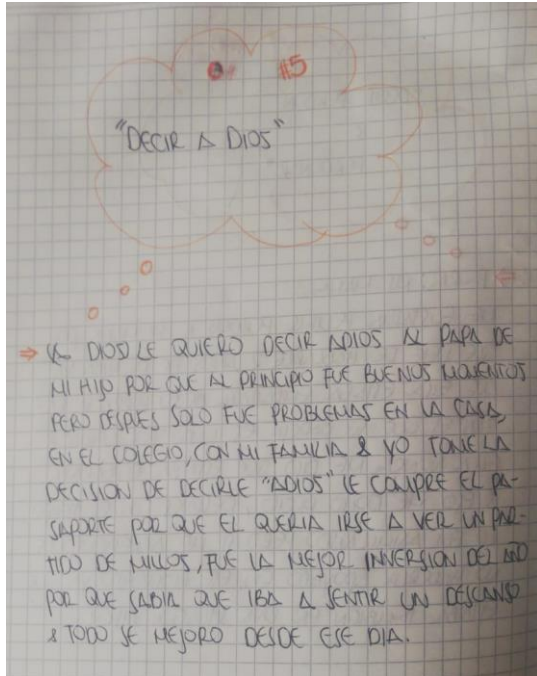 #5
"DECIR A DIOS"
⇒ (A DIOS) LE QUIERO DECIR ADIOS AL PAPA DE
MI HIJO POR QUE AL PRINCIPIO FUE BUENOS MOMENTOS
PERO DESPUES SOLO FUE PROBLEMAS EN LA CASA,
EN EL COLEGIO, CON MI FAMILIA & YO TOME LA
DECISION DE DECIRLE "ADIOS" LE COMPRE EL PA-
SAPORTE POR QUE EL QUERIA IRSE A VER UN PAR-
TIDO DE MILLOS, FUE LA MEJOR INVERSION DEL AÑO
POR QUE SABIA QUE IBA A SENTIR UN DESCANSO
& TODO SE MEJORO DESDE ESE DIA.